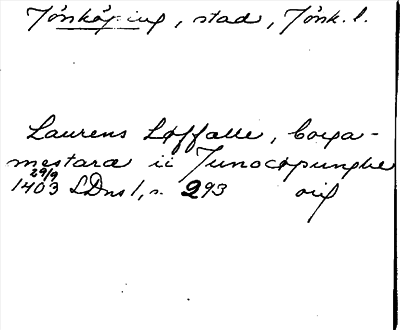 Jönköping, stad, Jönk. l.
Laurens Løffalle, borga-
mestara ii Junocøpunghe
29/9
1403 SDns 1, s. 293 orig